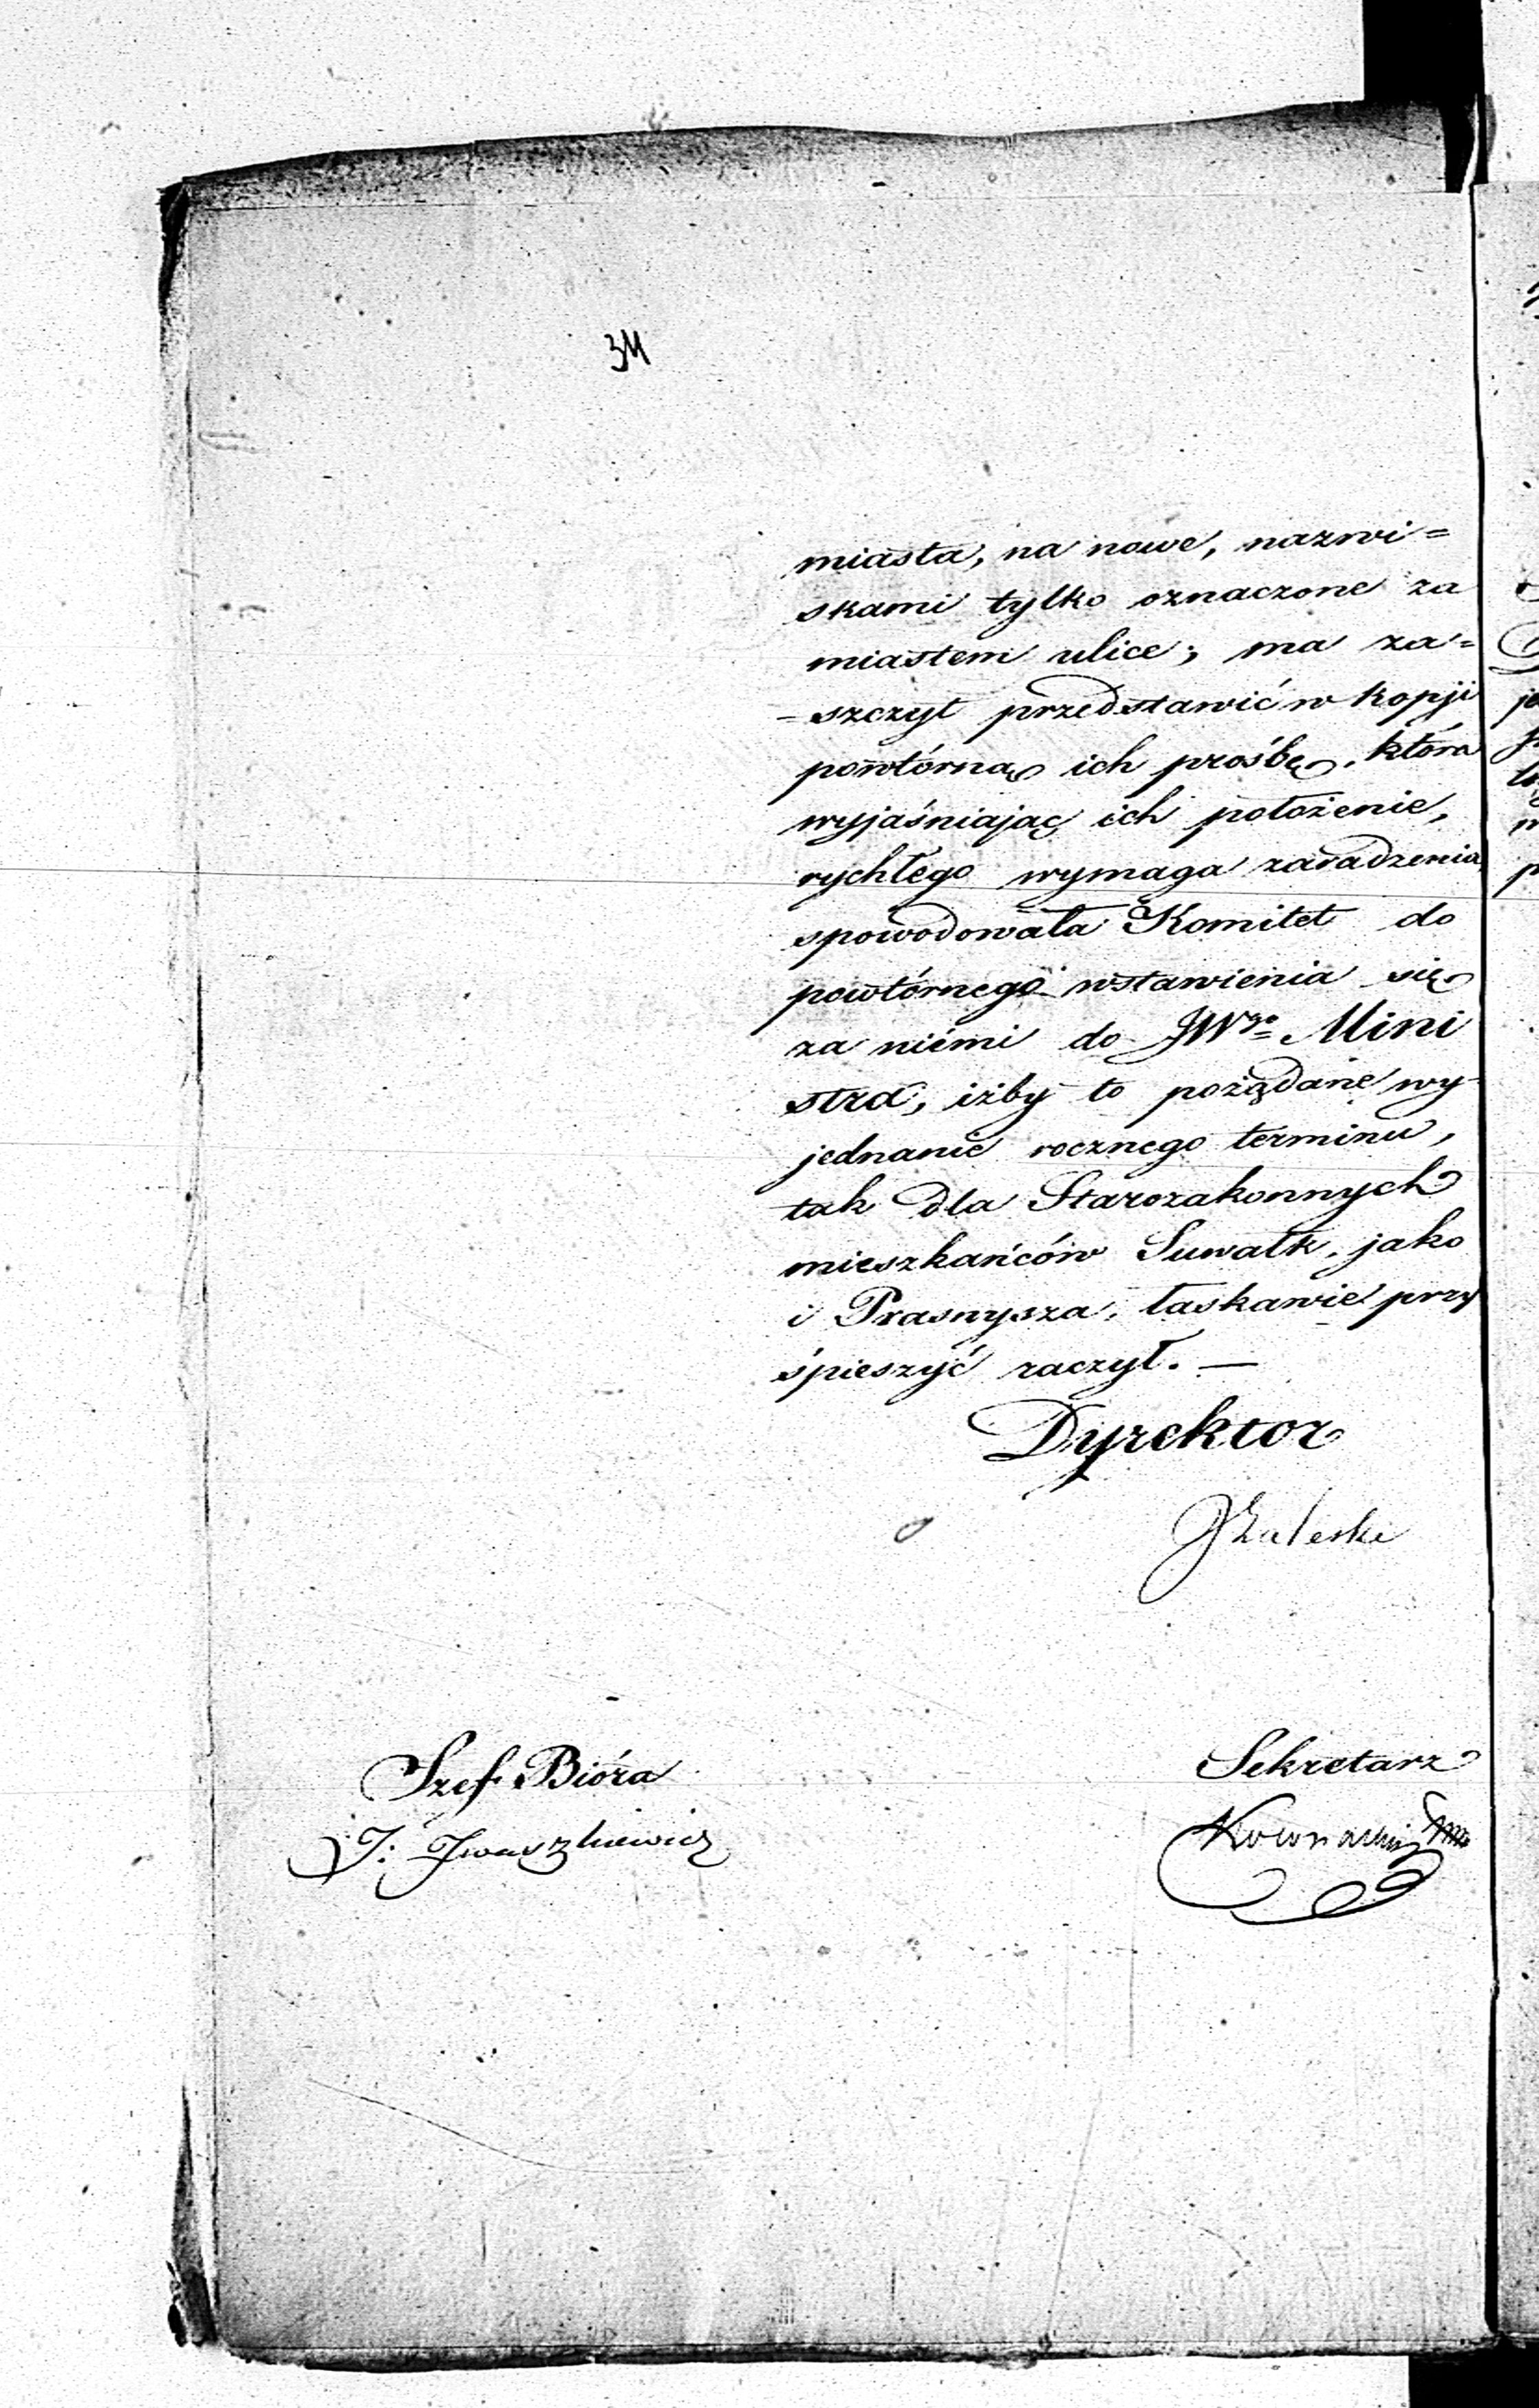 miasta, na nowe, nazwi=
skami tylko oznaczone za
miastem ulice; ma za=
-szczyt przedstawić w kopji
powtórną ich prośbę, która
wyjaśniając ich położenie,
rychłego wymaga zaradzenia
spowodowała Komitet do
powtórnego wstawienia się
za niémi do JWgo Mini
stra, iżby to pożądane wy-
jednanie rocznego terminu,
tak dla Starozakonnych
mieszkańców Suwałk, jako
i Prasnysza, łaskawie przy
śpieszyć raczył. —
Dyrektor
JZaleski
Szef Bióra
J: Iwaszkiewicz
Sekretarz
Kownacki